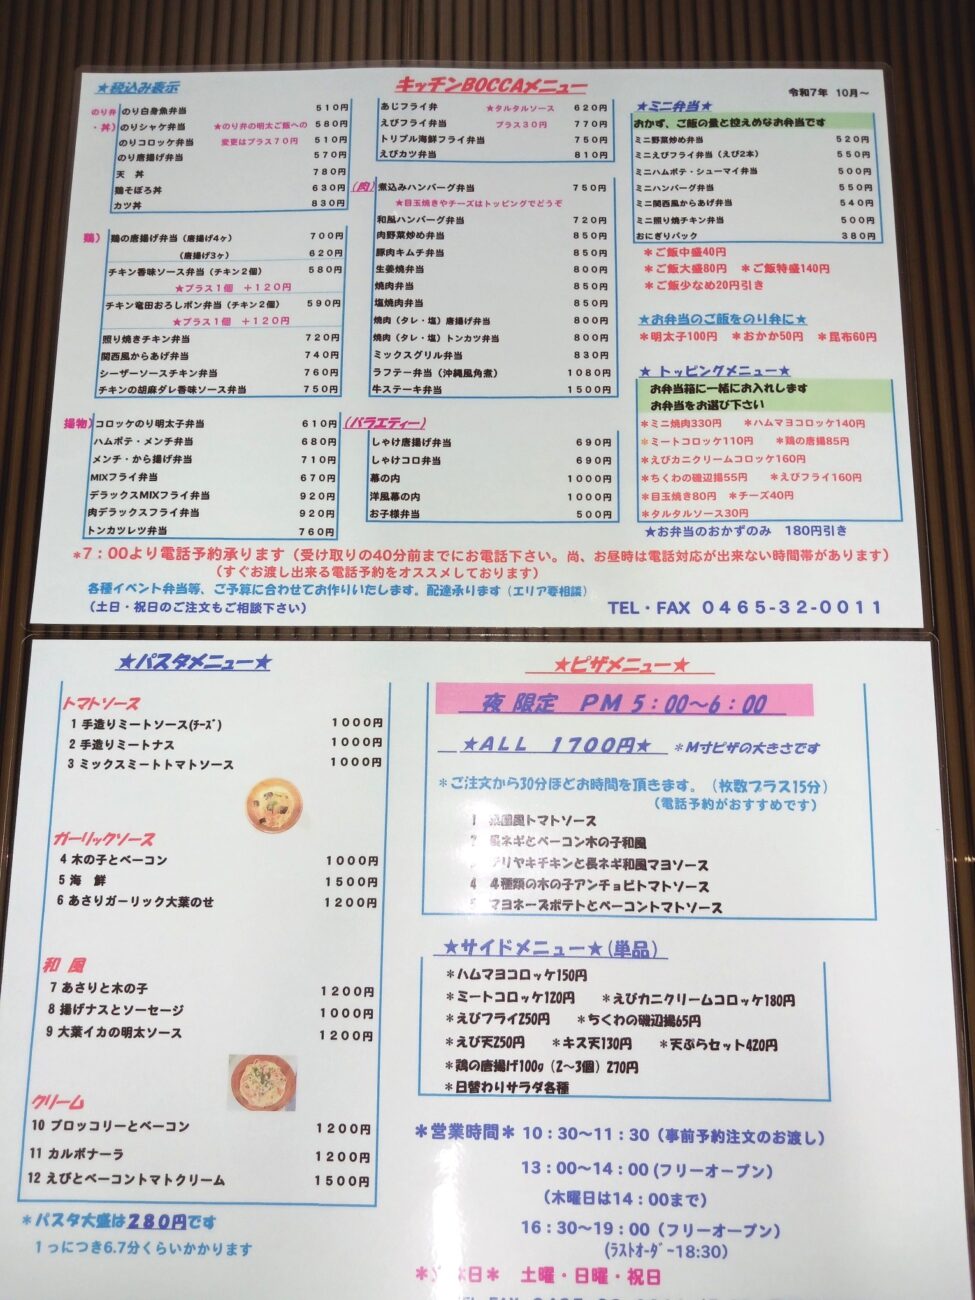 ★税込み表示
キッチンBOCCAメニュー
令和7年 10月～
のり弁 のり白身魚弁当 510円
・丼) のりシャケ弁当 ★のり弁の明太ご飯への 580円
のりコロッケ弁当 変更はプラス70円 510円
のり唐揚げ弁当 570円
天 丼 780円
鶏そぼろ丼 630円
カツ丼 830円
鶏) 鶏の唐揚げ弁当 (唐揚げ4ヶ) 700円
(唐揚げ3ヶ) 620円
チキン香味ソース弁当 (チキン2個) 580円
★プラス1個 +120円
チキン竜田おろしポン弁当 (チキン2個) 590円
★プラス1個 +120円
照り焼きチキン弁当 720円
関西風からあげ弁当 740円
シーザーソースチキン弁当 760円
チキンの胡麻ダレ香味ソース弁当 750円
揚物) コロッケのり明太子弁当 610円
ハムポテ・メンチ弁当 680円
メンチ・から揚げ弁当 710円
MIXフライ弁当 670円
デラックスMIXフライ弁当 920円
肉デラックスフライ弁当 920円
トンカツレツ弁当 760円
あじフライ弁 ★タルタルソース 620円
えびフライ弁当 プラス30円 770円
トリプル海鮮フライ弁当 750円
えびカツ弁当 810円
(肉) 煮込みハンバーグ弁当 750円
★目玉焼きやチーズはトッピングでどうぞ
和風ハンバーグ弁当 720円
肉野菜炒め弁当 850円
豚肉キムチ弁当 850円
生姜焼弁当 800円
焼肉弁当 850円
塩焼肉弁当 850円
焼肉 (タレ・塩) 唐揚げ弁当 800円
焼肉 (タレ・塩) トンカツ弁当 800円
ミックスグリル弁当 830円
ラフテー弁当 (沖縄風角煮) 1080円
牛ステーキ弁当 1500円
(バラエティー)
しゃけ唐揚げ弁当 690円
しゃけコロ弁当 690円
幕の内 1000円
洋風幕の内 1000円
お子様弁当 500円
★ミニ弁当★
おかず、ご飯の量と控えめなお弁当です
ミニ野菜炒め弁当 520円
ミニえびフライ弁当 (えび2本) 550円
ミニハムポテ・シューマイ弁当 500円
ミニハンバーグ弁当 550円
ミニ関西風からあげ弁当 540円
ミニ照り焼チキン弁当 500円
おにぎりパック 380円
＊ご飯中盛40円
＊ご飯大盛80円 ＊ご飯特盛140円
＊ご飯少なめ20円引き
★お弁当のご飯をのり弁に★
＊明太子100円 ＊おかか50円 ＊昆布60円
★ トッピングメニュー★
お弁当箱に一緒にお入れします
お弁当をお選び下さい
＊ミニ焼肉330円 ＊ハムマヨコロッケ140円
＊ミートコロッケ110円 ＊鶏の唐揚85円
＊えびカニクリームコロッケ160円
＊ちくわの磯辺揚55円 ＊えびフライ160円
＊目玉焼き80円 ＊チーズ40円
＊タルタルソース30円
★お弁当のおかずのみ 180円引き
＊7：00より電話予約承ります (受け取りの40分前までにお電話下さい。尚、お昼時は電話対応が出来ない時間帯があります)
(すぐお渡し出来る電話予約をオススメしております)
各種イベント弁当等、ご予算に合わせてお作りいたします。配達承ります (エリア要相談)
(土日・祝日のご注文もご相談下さい)
TEL・FAX 0465-32-0011
★パスタメニュー★
トマトソース
1 手造りミートソース(ﾁｰｽﾞ) 1000円
2 手造りミートナス 1000円
3 ミックスミートトマトソース 1000円
ガーリックソース
4 木の子とベーコン 1000円
5 海 鮮 1500円
6 あさりガーリック大葉のせ 1200円
和 風
7 あさりと木の子 1200円
8 揚げナスとソーセージ 1000円
9 大葉イカの明太ソース 1200円
クリーム
10 ブロッコリーとベーコン 1200円
11 カルボナーラ 1200円
12 えびとベーコントマトクリーム 1500円
＊パスタ大盛は280円です
1つにつき6.7分くらいかかります
★ピザメニュー★
夜 限定 PM 5：00～6：00
★ALL 1700円★ ＊M寸ピザの大きさです
＊ご注文から30分ほどお時間を頂きます。(枚数プラス15分)
(電話予約がおすすめです)
風トマトソース
長ネギとベーコン木の子和風
テリヤキチキンと長ネギ和風マヨソース
4 4種類の木の子アンチョビトマトソース
マヨネーズポテトとベーコントマトソース
★サイドメニュー★(単品)
＊ハムマヨコロッケ150円
＊ミートコロッケ120円 ＊えびカニクリームコロッケ180円
＊えびフライ250円 ＊ちくわの磯辺揚65円
＊えび天250円 ＊キス天130円 ＊天ぷらセット420円
＊鶏の唐揚げ100g (2～3個) 270円
＊日替わりサラダ各種
＊営業時間＊ 10：30～11：30 (事前予約注文のお渡し)
13：00～14：00 (フリーオープン)
(木曜日は14：00まで)
16：30～19：00 (フリーオープン)
(ﾗｽﾄｵｰﾀﾞｰ18:30)
休日＊ 土曜・日曜・祝日